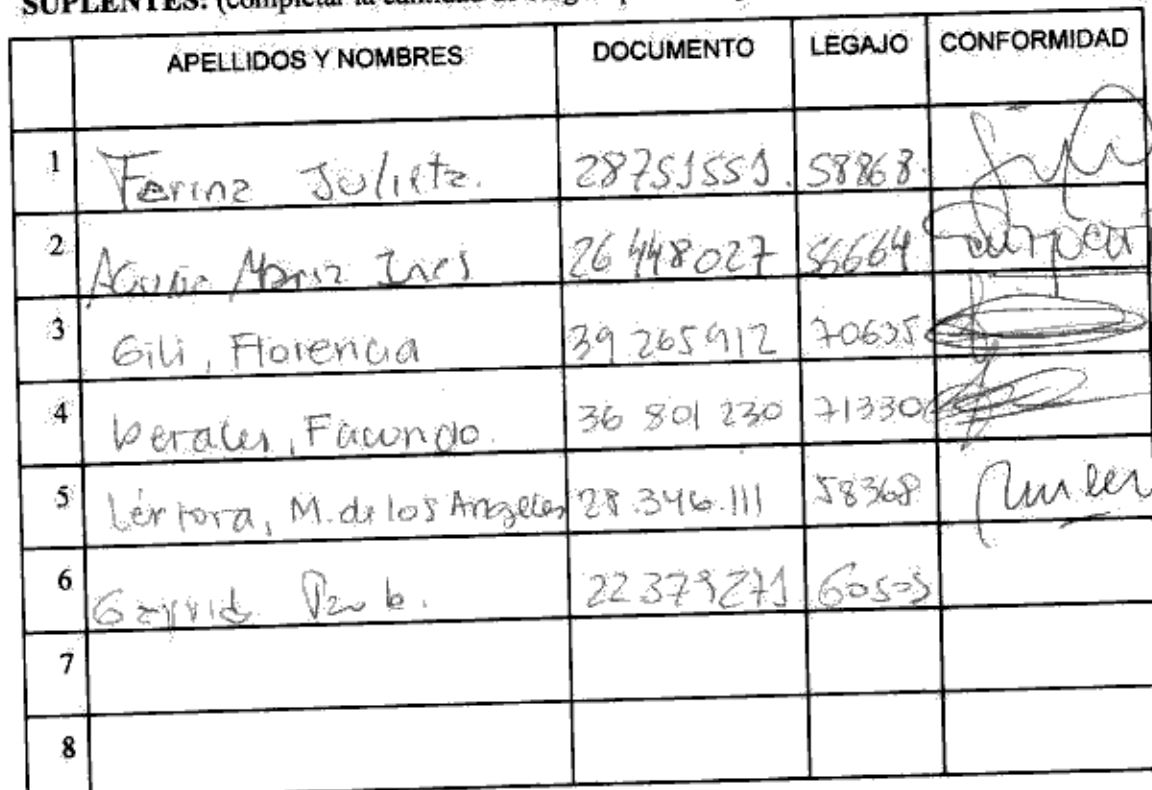 SUPLENTES: (completar la cantidad de
APELLIDOS Y NOMBRES DOCUMENTO LEGAJO CONFORMIDAD
1 Ferina Julieta. 28751551 58868
2 Maria Ines 26 448027 56664
3 Gili, Florencia 39 265912 70635
4 Facundo. 36 801 230 71330
5 Lértora, M. de los Angeles 28.346.111 58368
6 22379271
7
8